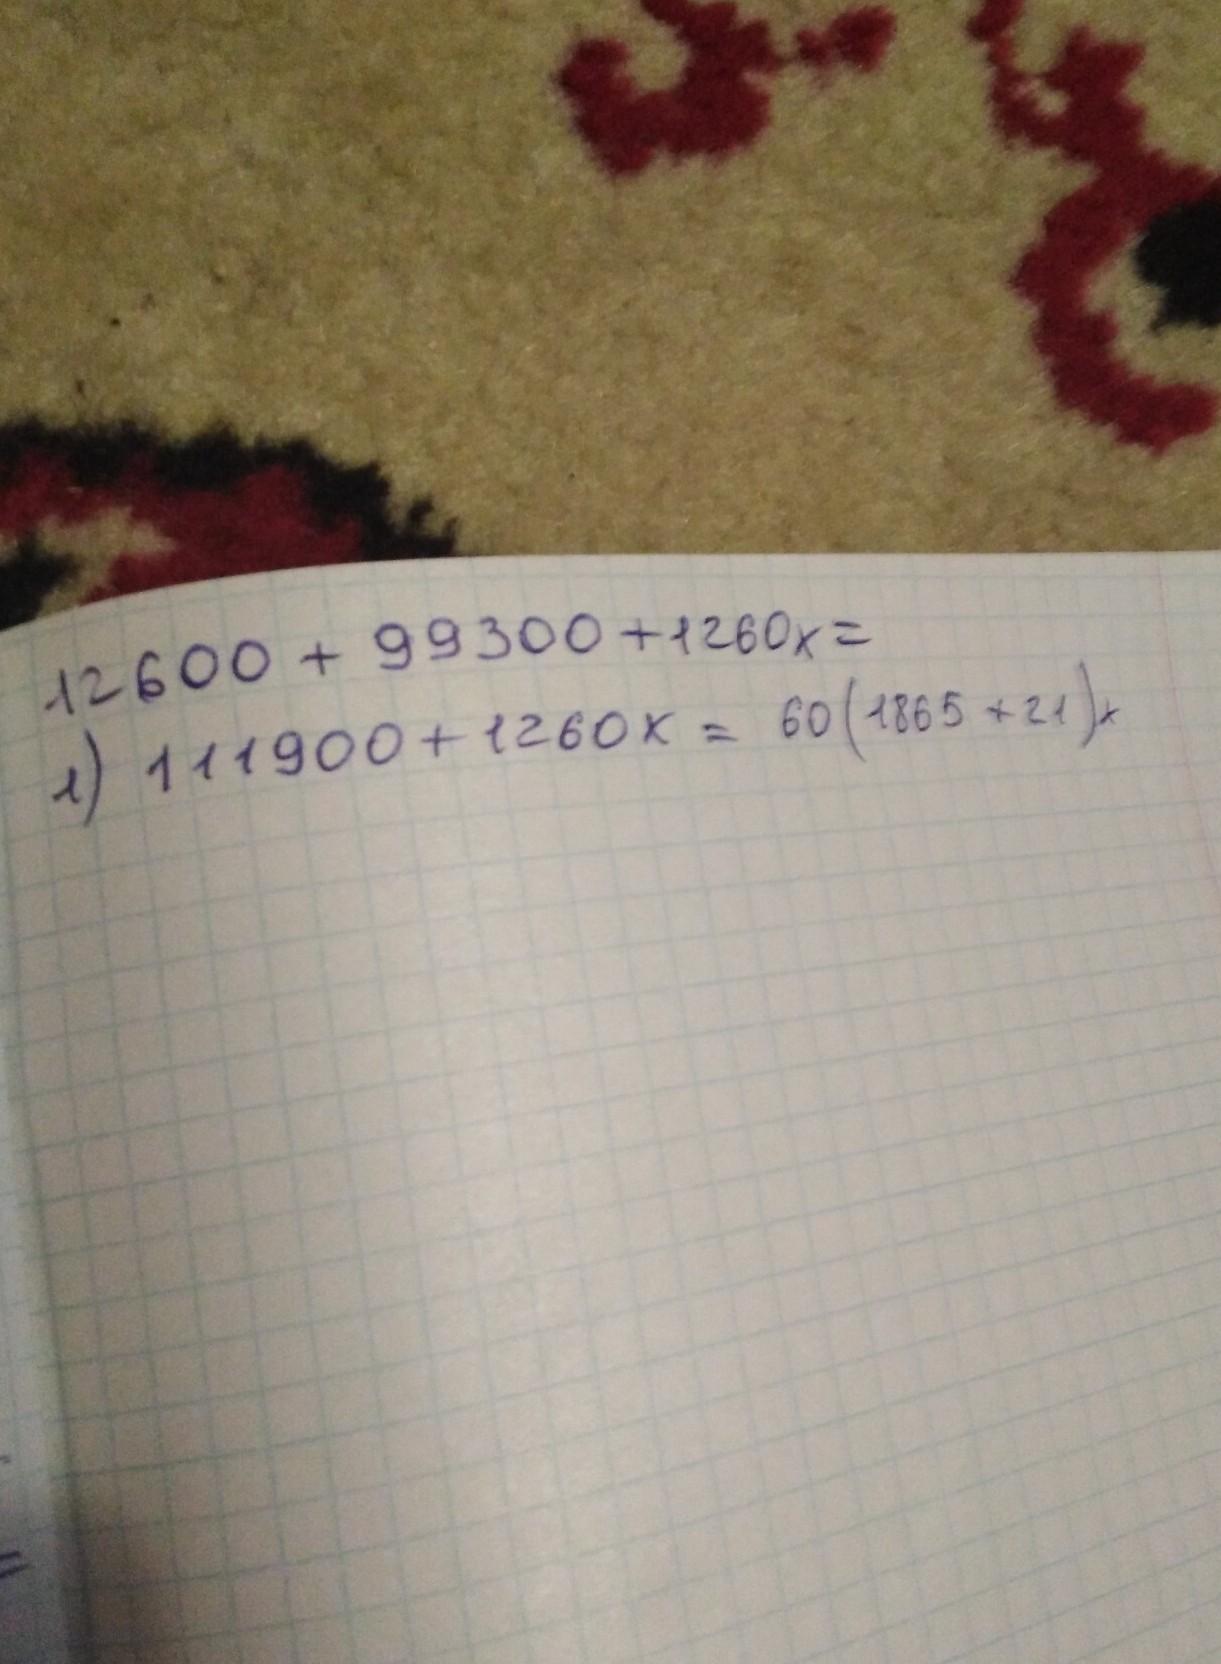 12600 + 99300 + 1260x =
1) 111900 + 1260x = 60(1865 + 21)x
=